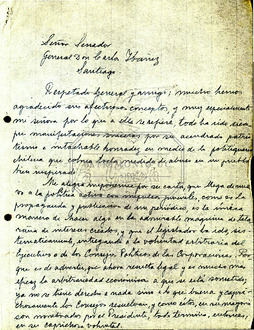 Señor Senador
General Don Carlos Ibáñez
Santiago
Respetado General y amigo; mucho hemos
agradecido sus afectuosos conceptos, y muy especialmente
mi señora por lo que a ella se refiere, todo ha sido siem
pre manifestaciones sinceras por su acendrado patrio
tismo e intachable honradez en medio de la politiquería
chilena que colma toda medida de abuso en su
bien inspirado.
Me alegra imponerme por su carta, que llega de nuevo
a la política activa con juvenil, como es la
propaganda y publicación de un periódico, es la única
manera de hacer algo en la admirable maquina de tela
raña de intereses creados, y que el legislador ha ido sis-
tematicamente, entregando a la voluntad arbitraria del
Ejecutivo o de los Consejos Políticos de las Corporaciones. Por
que es de advertir, que ahora resulta legal y es mucho mas
eficaz la arbitrariedad económica a que se está sometido,
ya no se tiene derecho a nada sino a lo que buena y capri-
chosamente los Consejos resuelvan, y como estos, en su mayoría
son nombrados por el Presidente, todo termina, entonces,
en su caprichosa voluntad.